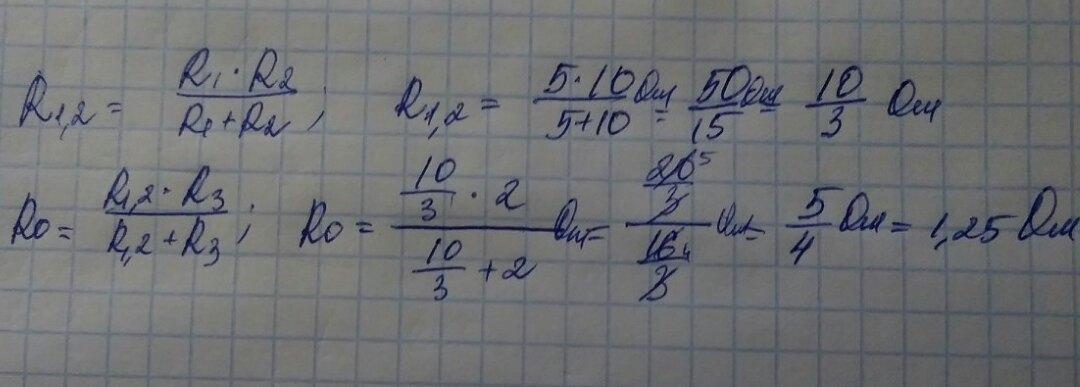 R1,2 = R1·R2/R1+R2; R1,2 = 5·10/5+10 Ом = 50/15 Ом = 10/3 Ом
R0 = R1,2·R3/R1,2+R3; R0 = (10/3 · 2)/(10/3 + 2) Ом = (20/3)/(16/3) Ом = 5/4 Ом = 1,25 Ом